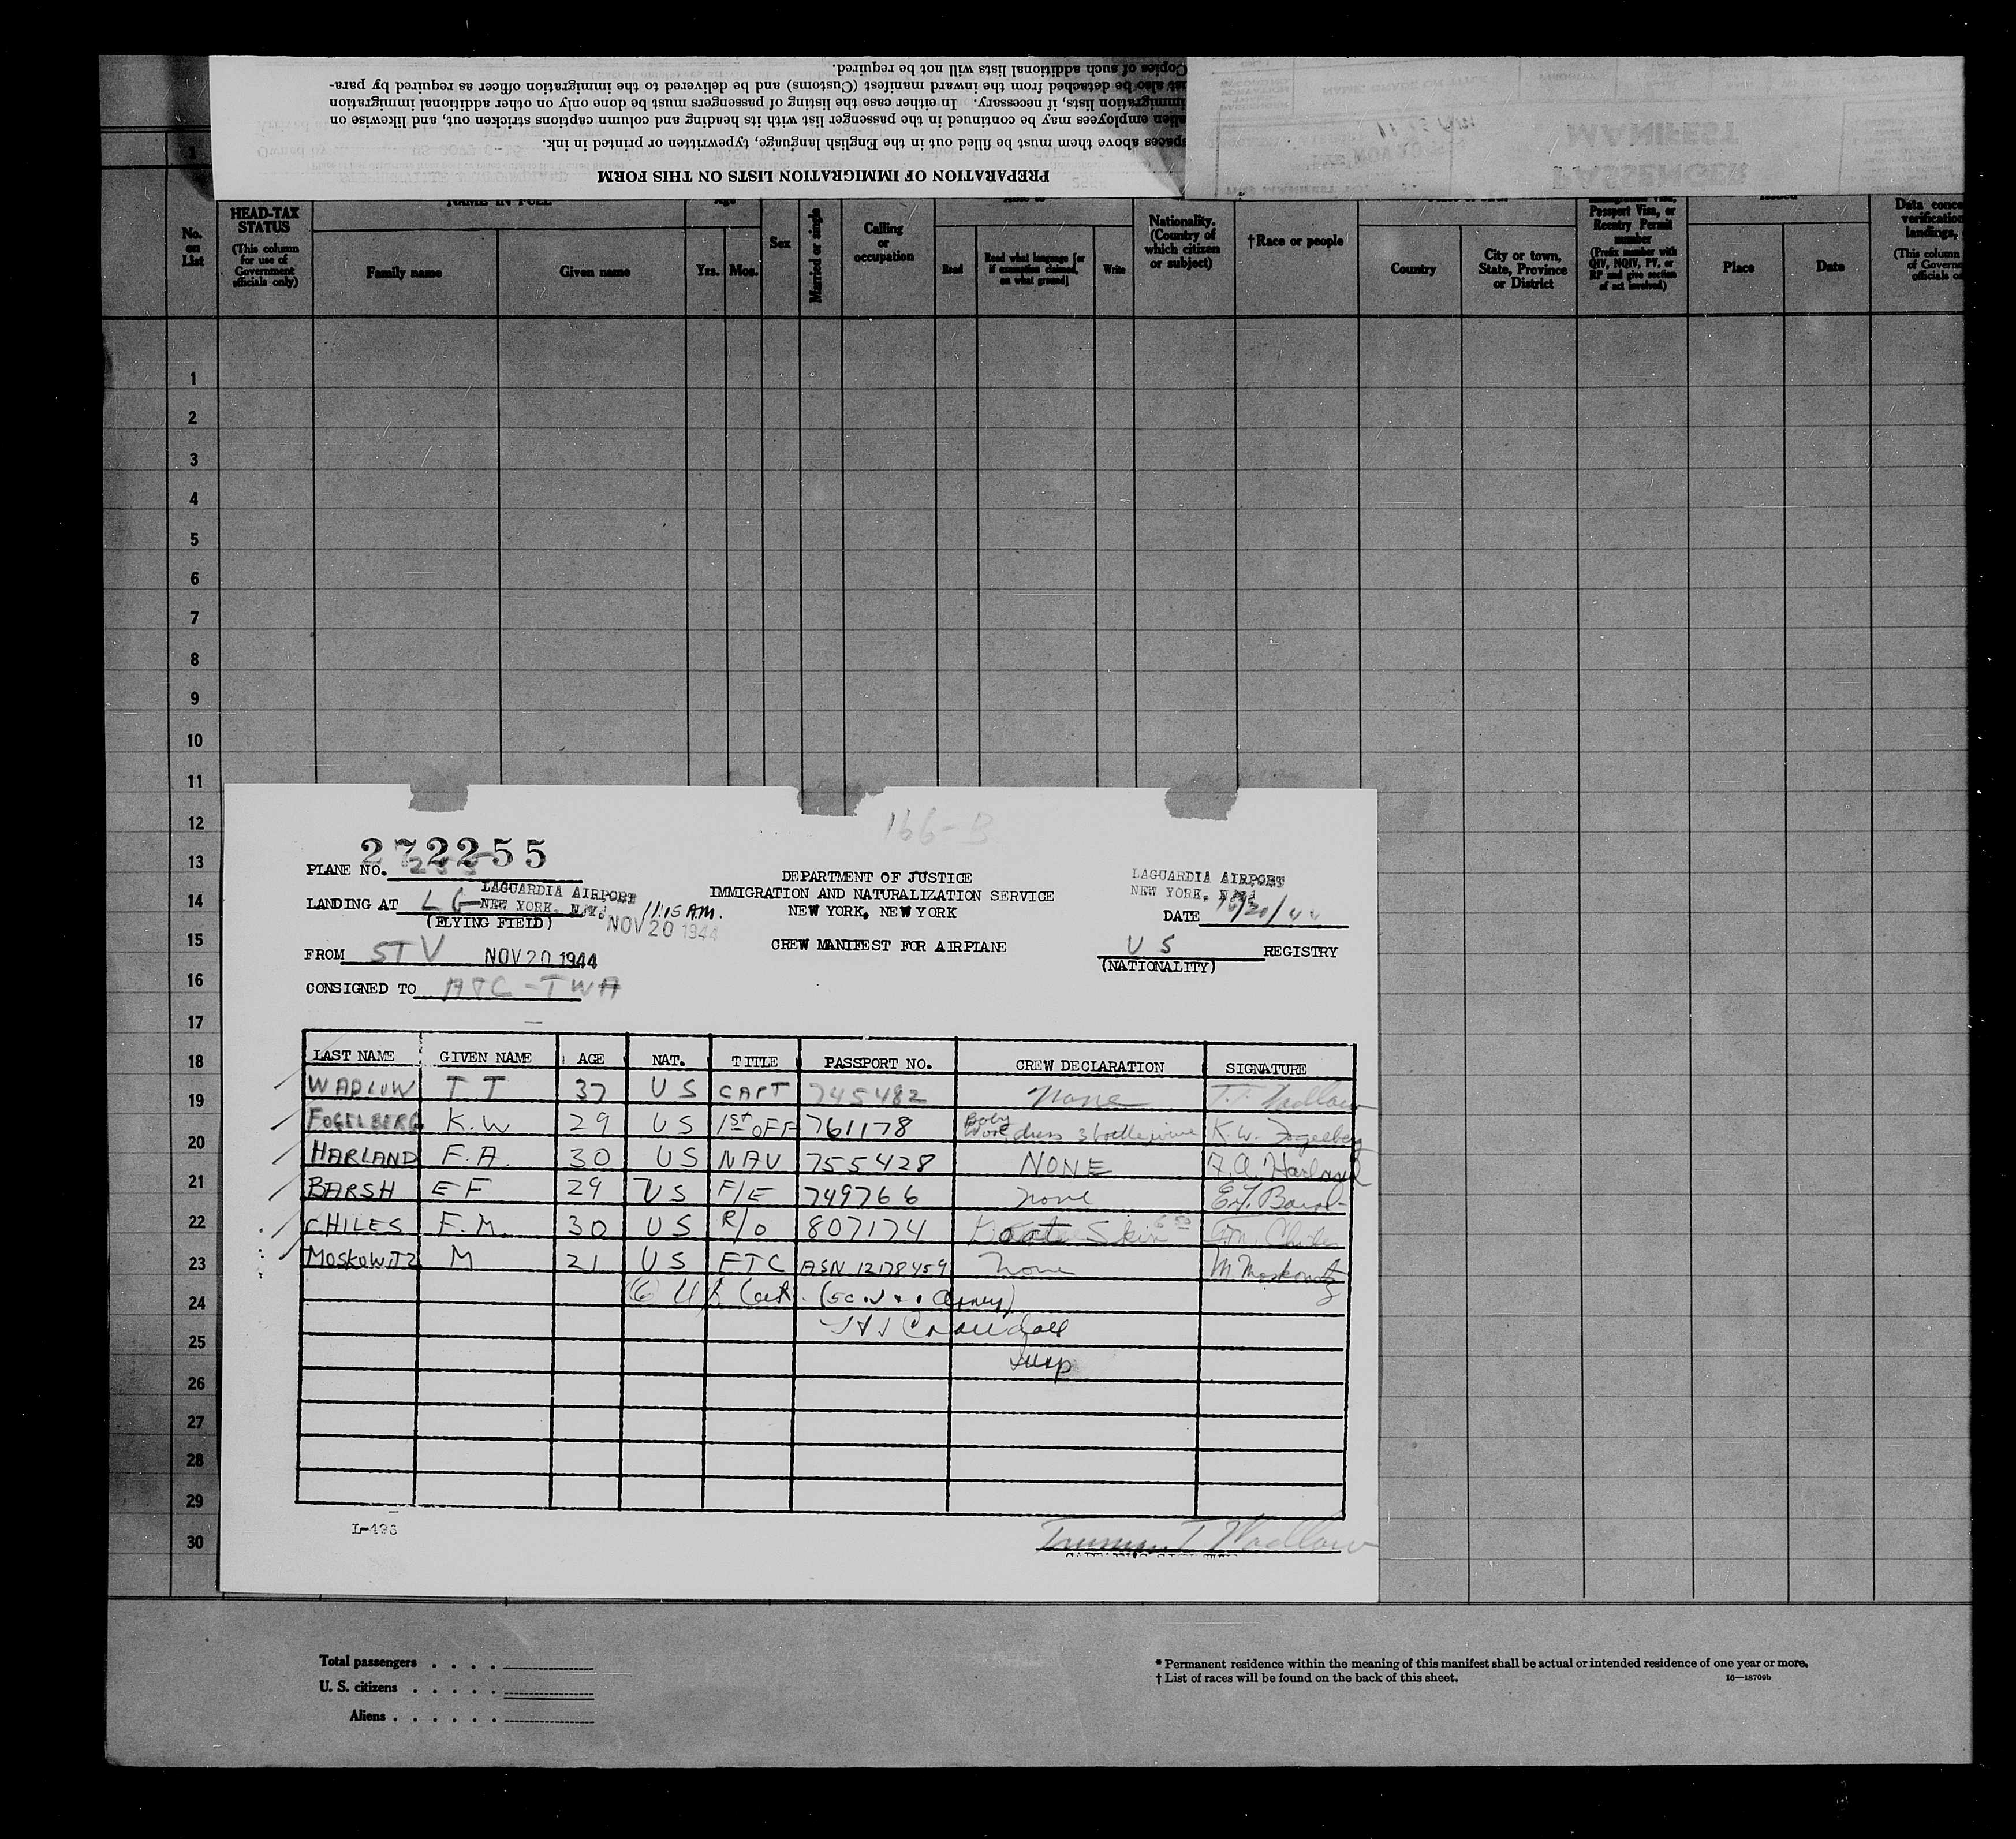 Copies of such additional lists will not be required.
also be detached from the inward manifest (Customs) and be delivered to the immigration officer as required by para-
immigration lists, if necessary. In either case the listing of passengers must be done only on other additional immigration
alien employees may be continued in the passenger list with its heading and column captions stricken out, and likewise on
spaces above them must be filled out in the English language, typewritten or printed in ink.
PREPARATION OF IMMIGRATION LISTS ON THIS FORM
PASSENGER
MANIFEST
No. on List
HEAD-TAX STATUS
(This column for use of Government officials only)
NAME IN FULL
Family name
Given name
Age
Yrs.
Mos.
Sex
Married or single
Calling or occupation
Read
Read what language [or if exemption claimed, on what ground]
Write
Nationality. (Country of which citizen or subject)
†Race or people
Country
City or town, State, Province or District
Passport Visa, or Reentry Permit number
(Prefix number with QIV, NQIV, PV, or RP and give section of act involved)
Issued
Place
Date
1
2
3
4
5
6
7
8
9
10
11
12
13
14
15
16
17
18
19
20
21
22
23
24
25
26
27
28
29
30
166-B
272255
PLANE NO.
LANDING AT LG LAGUARDIA AIRPORT
NEW YORK, N.Y. 11:15 A.M.
(FLYING FIELD) NOV 20 1944
FROM STV NOV 20 1944
CONSIGNED TO ATC-TWA
DEPARTMENT OF JUSTICE
IMMIGRATION AND NATURALIZATION SERVICE
NEW YORK, NEW YORK
CREW MANIFEST FOR AIRPLANE
LAGUARDIA AIRPORT
NEW YORK, N.Y.
DATE 11/20/44
US REGISTRY
(NATIONALITY)
LAST NAME GIVEN NAME AGE NAT. TITLE PASSPORT NO. CREW DECLARATION SIGNATURE
WADLOW T T 37 US CAPT 745482 None T.T. Wadlow
FOGELBERG K.W 29 US 1ST OFF 761178 Baby dress K.W. Fogelberg
HARLAND F.A. 30 US NAV 755428 NONE F.A. Harland
BARSH E F 29 US F/E 749766 none E.F. Barsh
CHILES F.M. 30 US R/O 807174 Skin F.M. Chiles
MOSKOWITZ M 21 US FTC ASN 12178459 None M Moskowitz
(6)
Crandall
Insp
L-498
Truman T Wadlow
Total passengers
U. S. citizens
Aliens
* Permanent residence within the meaning of this manifest shall be actual or intended residence of one year or more.
† List of races will be found on the back of this sheet.
16—18709b